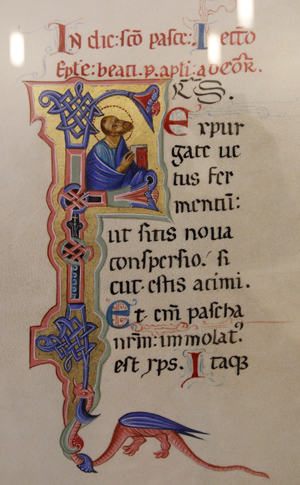 In die: sco pasce: Lectio
Eple: beati. p. apli: ad cor.
FRS.
Expur
gate ue
tus fer
mentu:
ut sitis noua
conspersio. si
cut estis acimi.
Et em pascha
nrm: immolat᾽.
est xps. Itaq